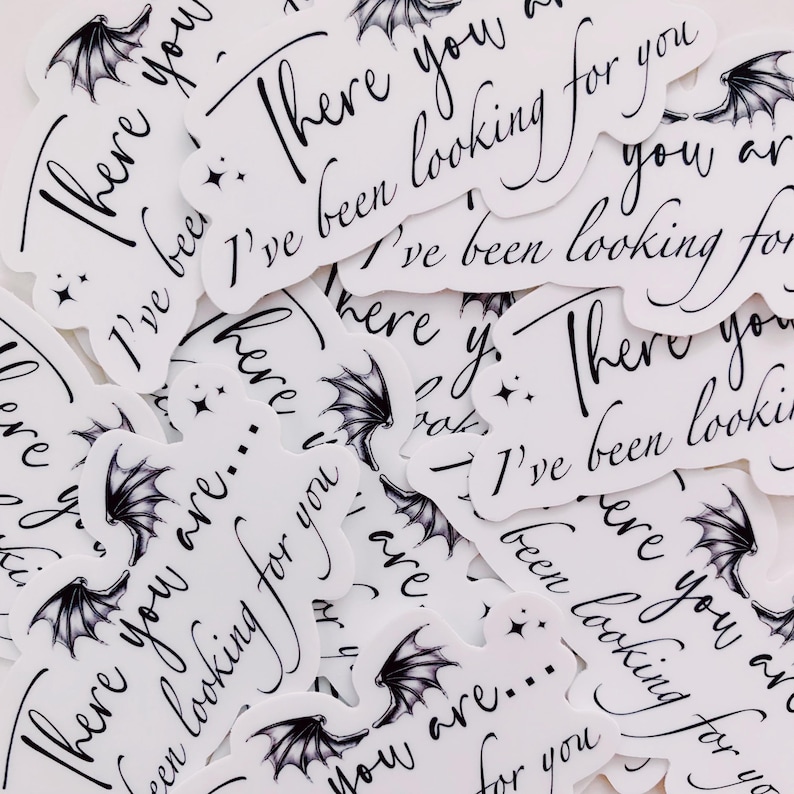 There you
I've been
There you are
I've been looking for you
you ar
I've been looking for
There
There
look
There you
I've been lookin
There y
There you are...
been looking for you
are
here you are
been looking for you
you are...
for you